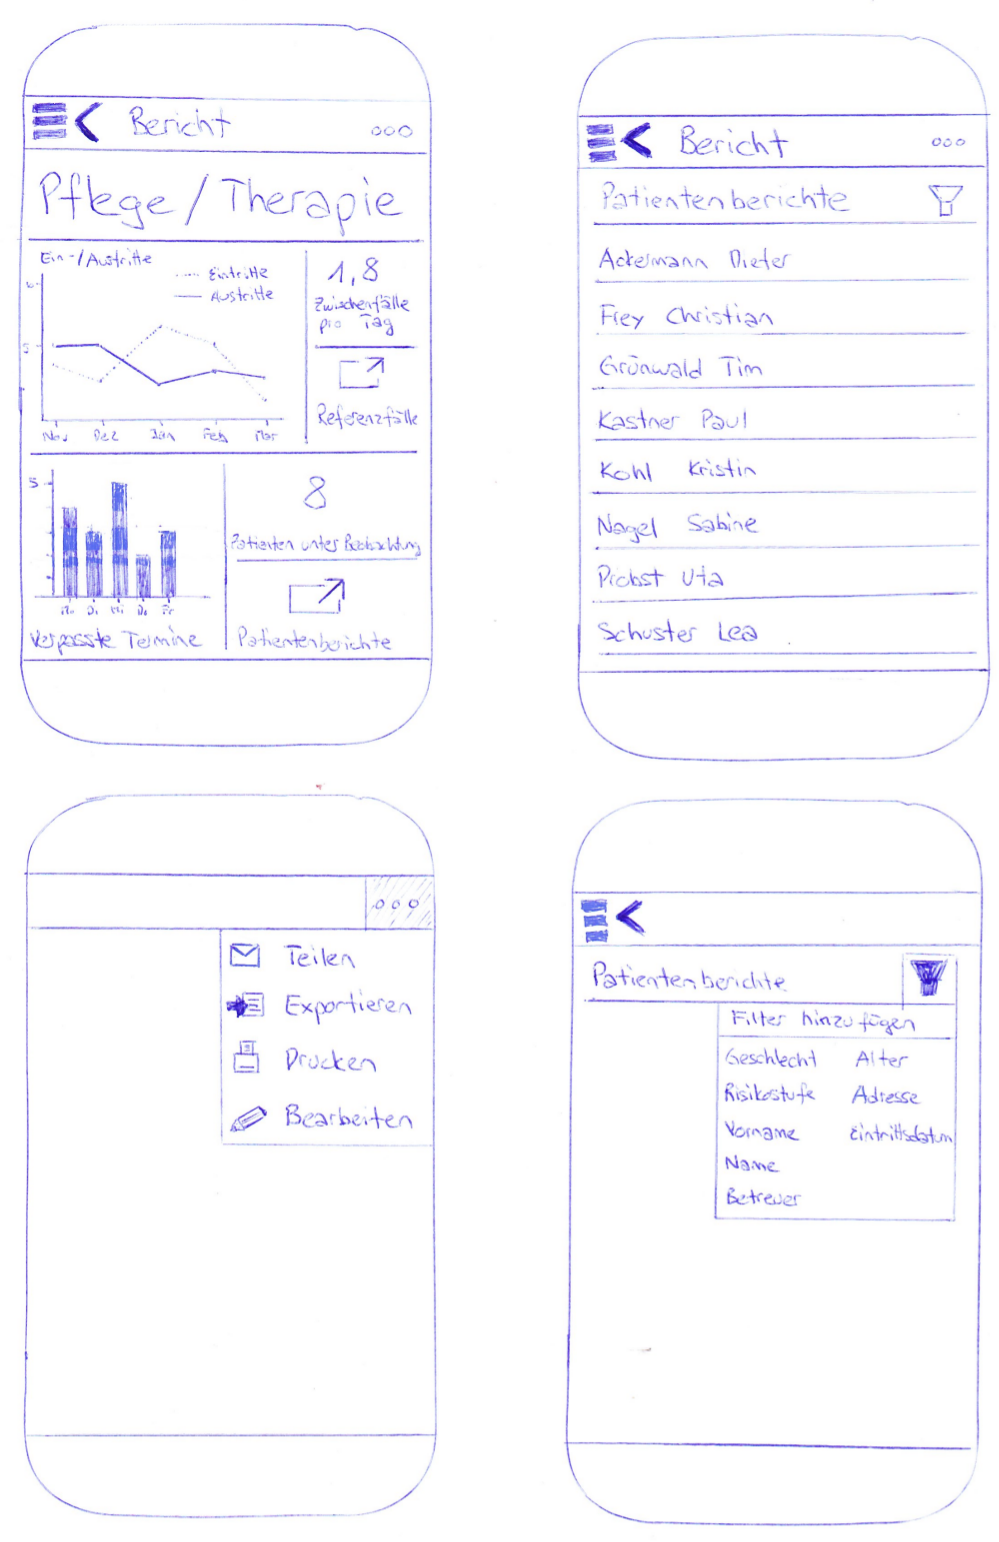 Bericht
Pflege / Therapie
Ein-/Austritte
Eintritte
Austritte
5
Nov Dez Jan Feb Mar
1,8
Zwischenfälle
pro Tag
Referenzfälle
5
Mo Di Mi Do Fr
Verpasste Termine
8
Patienten unter Beobachtung
Patientenberichte
Bericht
Patientenberichte
Ackermann Dieter
Frey Christian
Grünwald Tim
Kastner Paul
Kohl Kristin
Nagel Sabine
Probst Uta
Schuster Lea
Teilen
Exportieren
Drucken
Bearbeiten
Patientenberichte
Filter hinzufügen
Geschlecht Alter
Risikostufe Adresse
Vorname Eintrittsdatum
Name
Betreuer